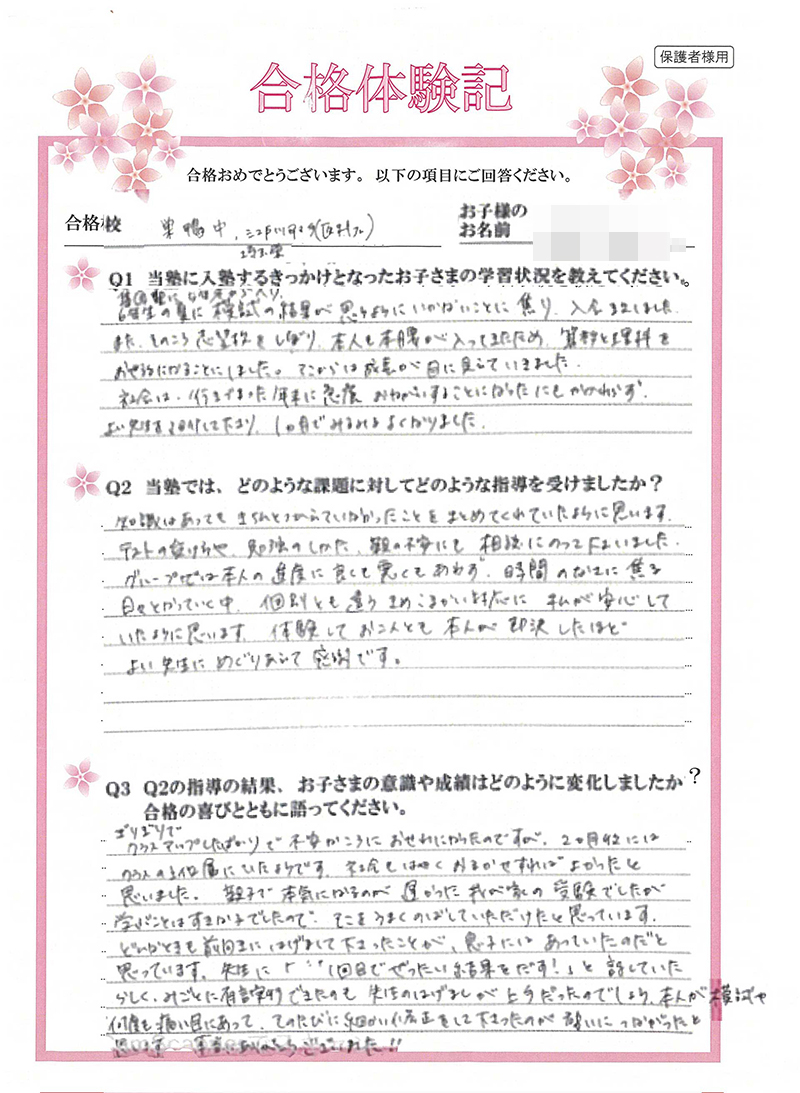 保護者様用
合格体験記
合格おめでとうございます。以下の項目にご回答ください。
合格校 巣鴨中、
お子様の
お名前
Q1 当塾に入塾するきっかけとなったお子さまの学習状況を教えてください。
6年生の夏に模試の結果が思うようにいかないことに焦り、入会しました。
また、そのころ志望校をしぼり、本人も本腰が入ってきたため、算数と理科を
おせわになることにしました。そこからは成長が目に見えていきました。
社会は、行きづまった年末に急遽おねがいすることになったにもかかわらず、
よい先生を紹介して下さり、1ヵ月でみるみるよくなりました。
Q2 当塾では、どのような課題に対してどのような指導を受けましたか？
知識はあってもきちんとつながっていなかったことをまとめてくれていたように思います。
テストの受け方や、勉強のしかた、親の不安にも相談にのって下さいました。
グループ塾では本人の進度に良くも悪くもあわず、時間のなさに焦る
日々とかっていく中、個別とも違うきめこまかい対応に私が安心して
いたように思います。体験してお二人とも本人が即決したほど
よい先生にめぐりあえて感謝です。
Q3 Q2の指導の結果、お子さまの意識や成績はどのように変化しましたか？
合格の喜びとともに語ってください。
ぎりぎりで
クラスアップしたばかりで不安なころにおせわになったのですが、2ヵ月後には
クラスの上位層にいたようです。社会もはやくおまかせすればよかったと
思いました。親子で本気になるのが遅かった我が家の受験でしたが
学ぶことはすきな子でしたので、そこをうまくのばしていただけたと思っています。
どんなときも前向きにはげまして下さったことが、息子にはあっていたのだと
思っています。先生に「1回目でぜったい結果をだす！」と話していた
らしく、みごとに有言実行できたのも先生のはげましが上手だったのでしょう。本人が模試や
何度も痛い目にあって、そのたびに細かい修正をして下さったのが勝いにつながったと
思います 本当にありがとうございました!!